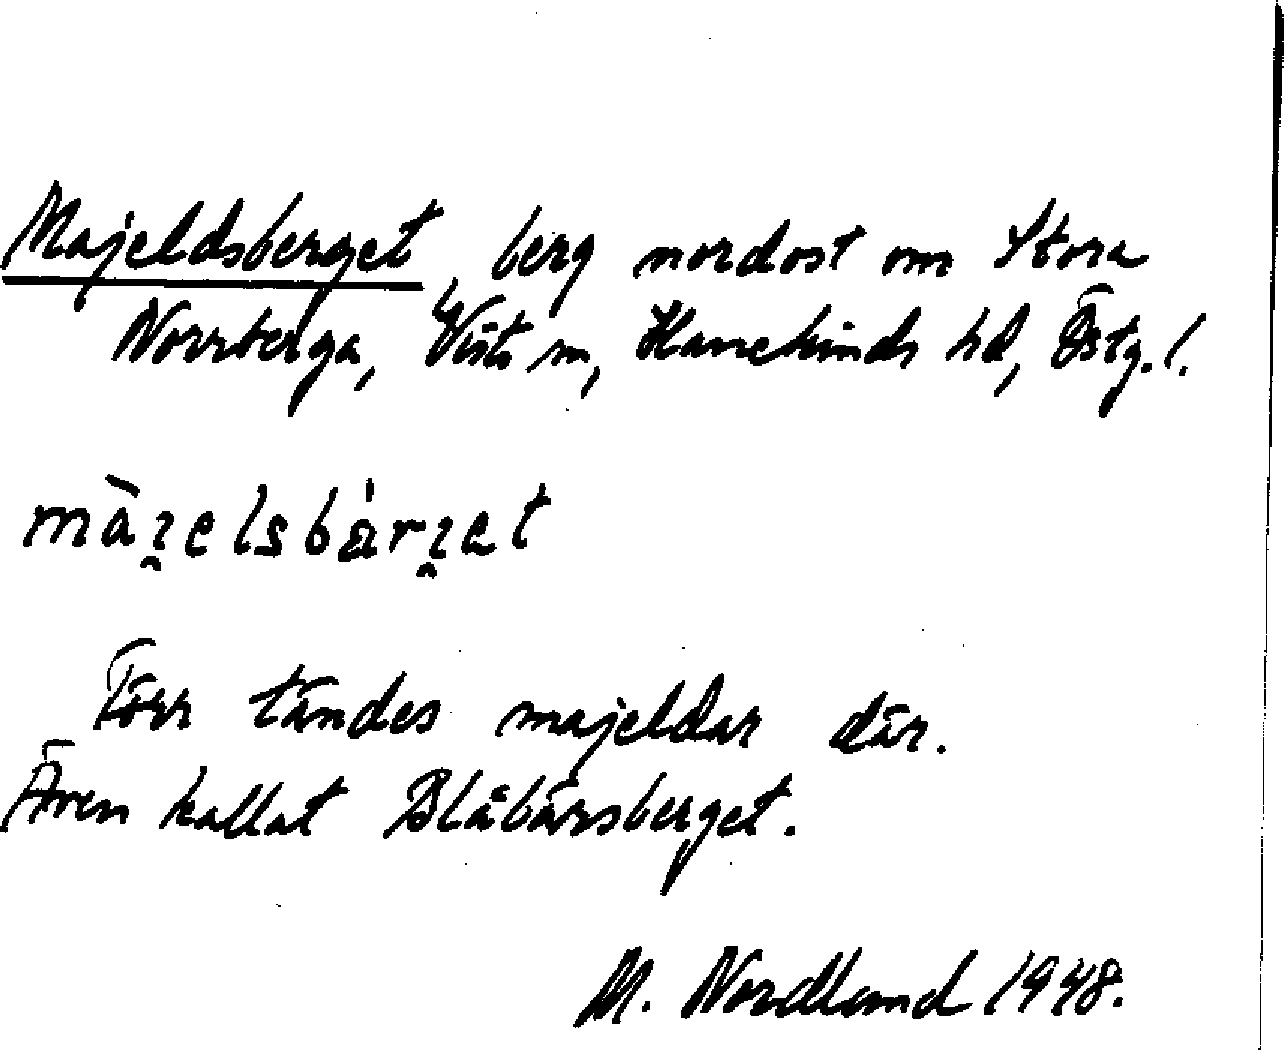 Majeldsberget, berg nordost om Stora
Norrberga, Vists sn, Hanekinds hd, Östg. l.
màʒ̯elsbárʒ̯et
Förr tändes majeldar där.
Även kallat Blåbärsberget.
M. Nordlund 1948.